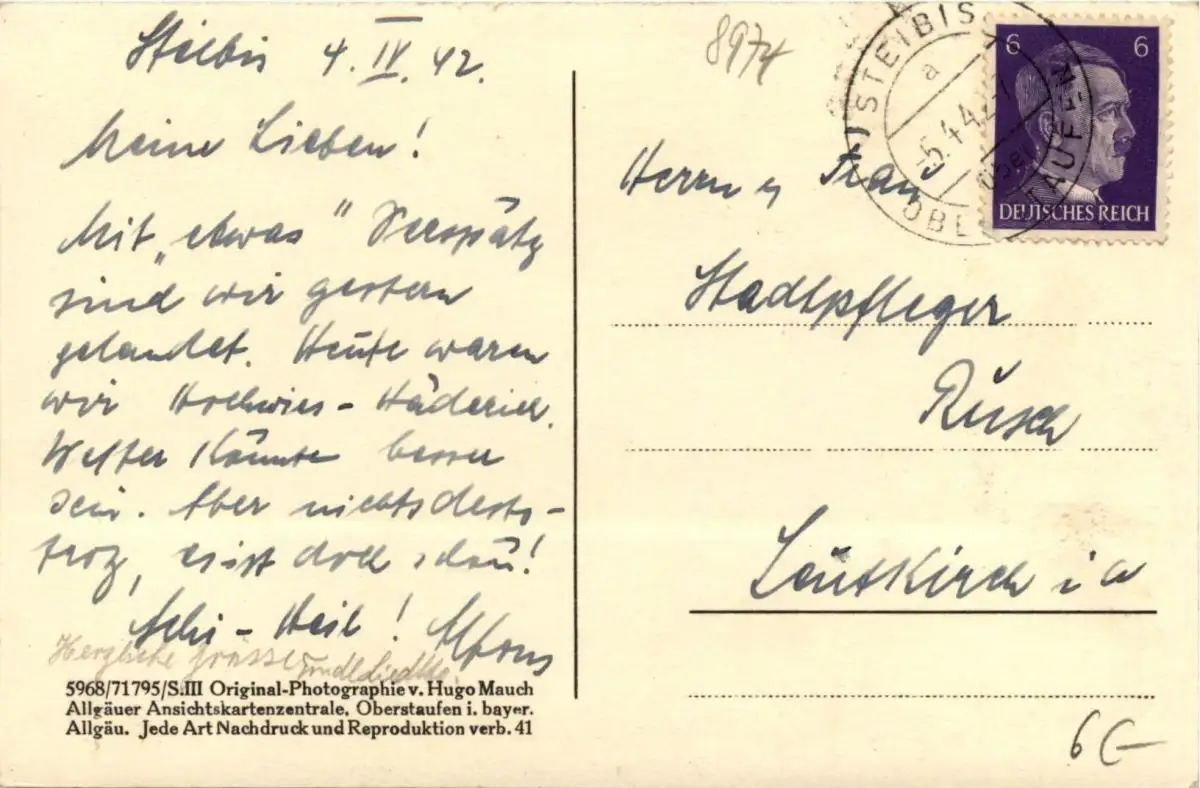 Steibis 4. IV. 42.
Meine Lieben!
Mit „etwas" Verspätg
sind wir gestern
gelandet. Heute waren
wir Hochwies - Häderich.
Wetter könnte besser
sein. Aber nichtsdesto-
trotz, es ist doch schön!
Schi - Heil! Alfons
Herzliche Grüsse
5968/71795/S.III Original-Photographie v. Hugo Mauch
Allgäuer Ansichtskartenzentrale, Oberstaufen i. bayer.
Allgäu. Jede Art Nachdruck und Reproduktion verb. 41
8974
STEIBIS
a
-5.4.42-7
über
OBERSTAUFEN
6 6
DEUTSCHES REICH
Herrn u Frau
Stadtpfleger
Rusch
Leutkirch i a
6(-